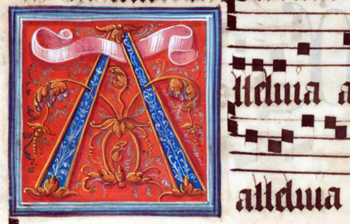 A lleluia a
alleluia